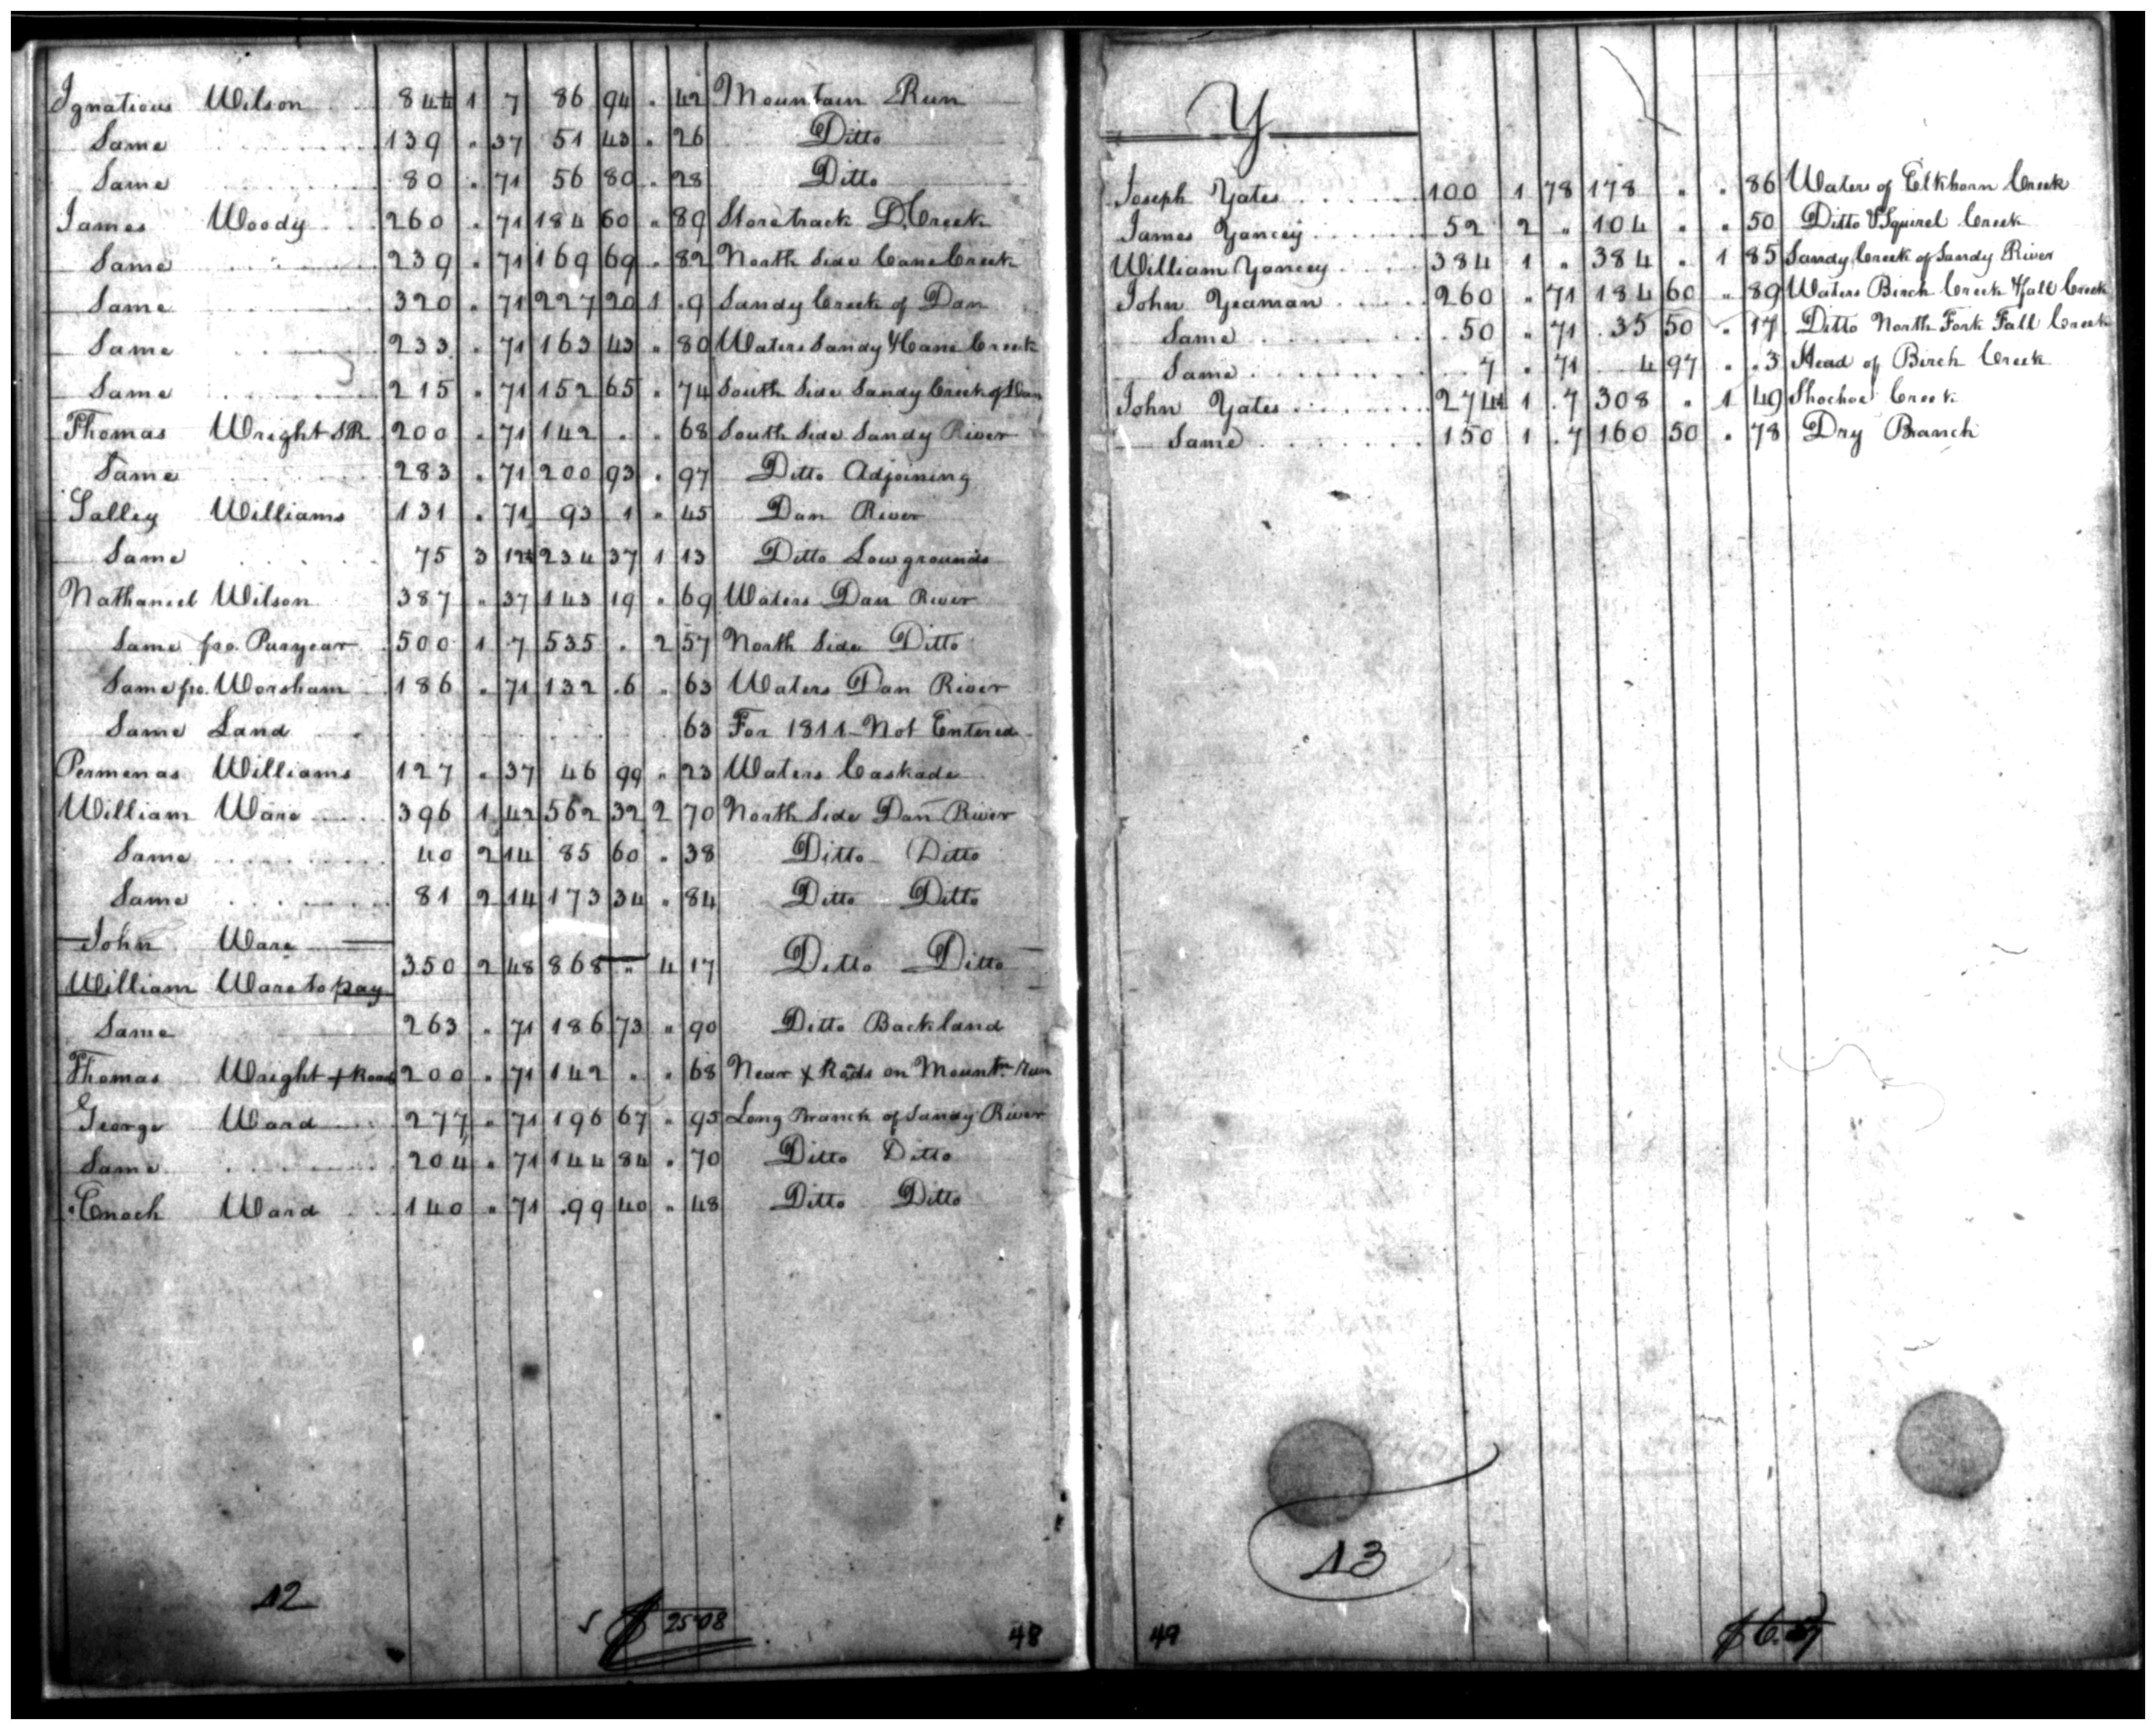 Ignatious Wilson 84¼ 1 7 86 94 " 42 Mountain Run
Same 139 " 37 51 43 " 26 Ditto
Same 80 " 71 56 80 " 28 Ditto
James Woody 260 " 71 184 60 " 89 Storetrack D. Creek
Same 239 " 71 169 69 " 82 North Side Cane Creek
Same 320 " 71 227 20 1 .9 Sandy Creek of Dan
Same 233 " 71 163 43 " 80 Waters Sandy & Cane Creek
Same 215 " 71 152 65 " 74 South Side Sandy Creek of Dan
Thomas Wright SR 200 " 71 142 " " 68 South Side Sandy River
Same 283 " 71 200 93 " 97 Ditto Adjoining
Salley Williams 131 " 71 93 1 " 45 Dan River
Same 75 3 12½ 234 37 1 13 Ditto Lowgrounds
Nathaniel Wilson 387 " 37 143 19 " 69 Waters Dan River
Same fro. Puryear 500 1 7 535 " 2 57 North Side Ditto
Same fro. Worsham 186 " 71 132 .6 " 63 Waters Dan River
Same Land 63 For 1811 Not Entered
Permenas Williams 127 " 37 46 99 " 23 Waters Caskade
William Ware 396 1 42 562 32 2 70 North Side Dan River
Same 40 2 14 85 60 " 38 Ditto Ditto
Same 81 2 14 173 34 " 84 Ditto Ditto
John Ware
350 2 48 868 " 4 17 Ditto Ditto
William Ware to pay
Same 263 " 71 186 73 " 90 Ditto Backland
Thomas Wright + Road 200 " 71 142 " " 68 Near + Rods on Mountn. Run
George Ward 277 " 71 196 67 " 95 Long Branch of Sandy River
Same 204 " 71 144 84 " 70 Ditto Ditto
Enoch Ward 140 " 71 .99 40 " 48 Ditto Ditto
12
$ 25.08
48
Y
Joseph Yates 100 1 78 178 " " 86 Waters of Elkhorn Creek
James Yancey 52 2 " 104 " " 50 Ditto Squirel Creek
William Yancey 384 1 " 384 " 1 85 Sandy Creek of Sandy River
John Yeaman 260 " 71 184 60 " 89 Waters Birch Creek & fall Creek
Same 50 " 71 .35 50 " 17 Ditto North Fork Fall Creek
Same 7 " 71 4 97 " .3 Head of Birch Creek
John Yates 274¼ 1 .7 308 " 1 49 Shockoe Creek
Same 150 1 .7 160 50 " 78 Dry Branch
13
49